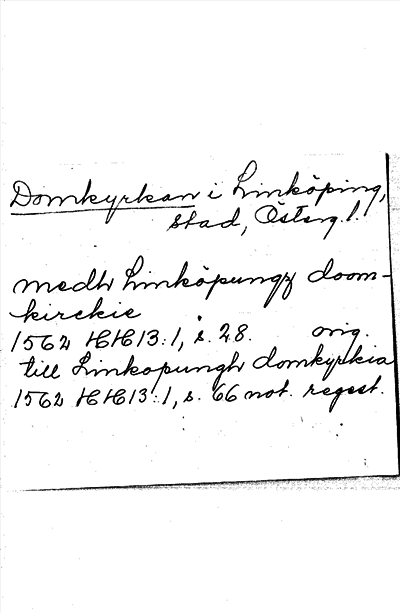 Domkyrkan i Linköping,
stad, Österg. l.
medh Linköpungz doom-
kirckie
1562 HH13:1, s. 28. orig.
till Linkopungh domkyrkia
1562 HH13:1, s. 66 not. regest.